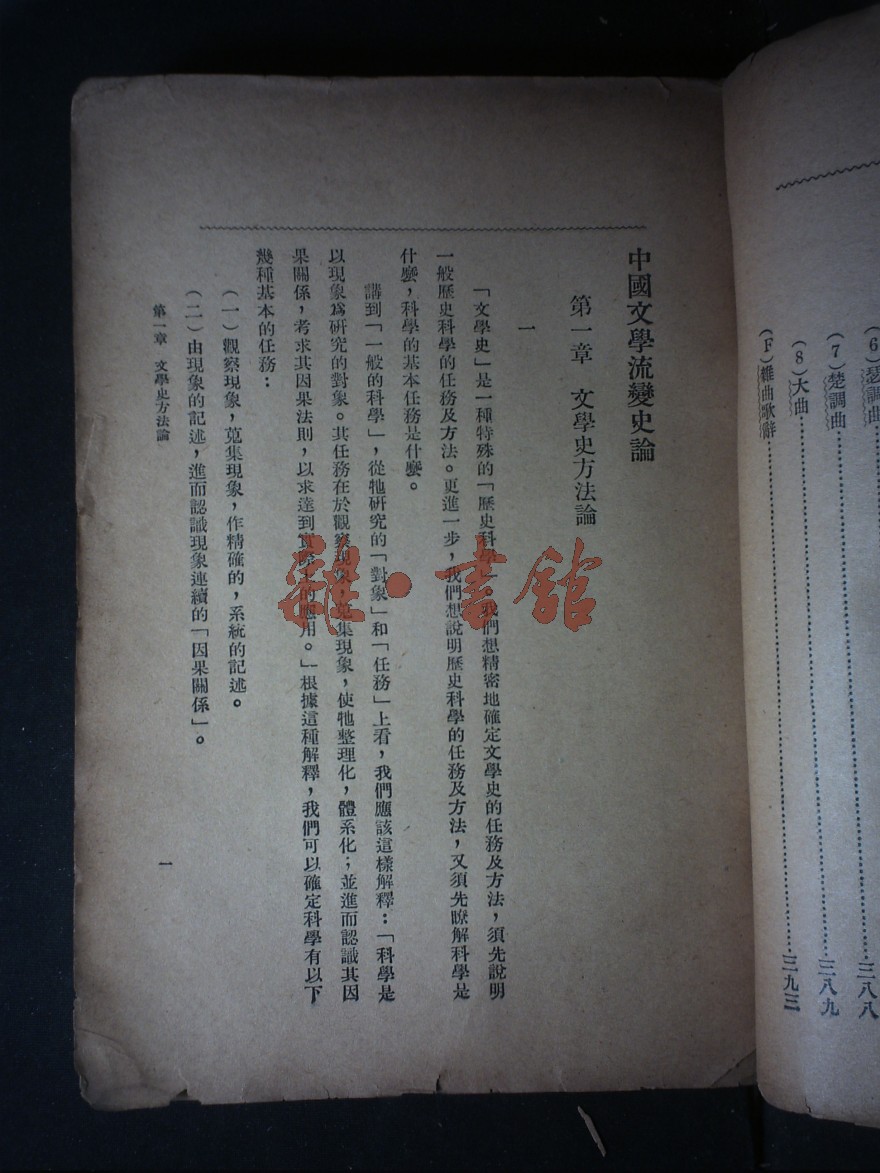 (6)瑟調曲……三八八
(7)楚調曲……三八九
(8)大曲……
(F)雜曲歌辭……三九三
中國文學流變史論
第一章 文學史方法論
一
「文學史」是一種特殊的「歷史科學」我們想精密地確定文學史的任務及方法,須先說明
一般歷史科學的任務及方法。更進一步,我們想說明歷史科學的任務及方法,又須先瞭解科學是
什麼,科學的基本任務是什麼。
講到「一般的科學」,從牠研究的「對象」和「任務」上看,我們應該這樣解釋:「科學是
以現象爲研究的對象。其任務在於觀察現象,蒐集現象,使牠整理化,體系化;並進而認識其因
果關係,考求其因果法則,以求達到實際上的應用。」根據這種解釋,我們可以確定科學有以下
幾種基本的任務:
(一)觀察現象,蒐集現象,作精確的,系統的記述。
(二)由現象的記述,進而認識現象連續的「因果關係」。
第一章 文學史方法論 一
雜·書館